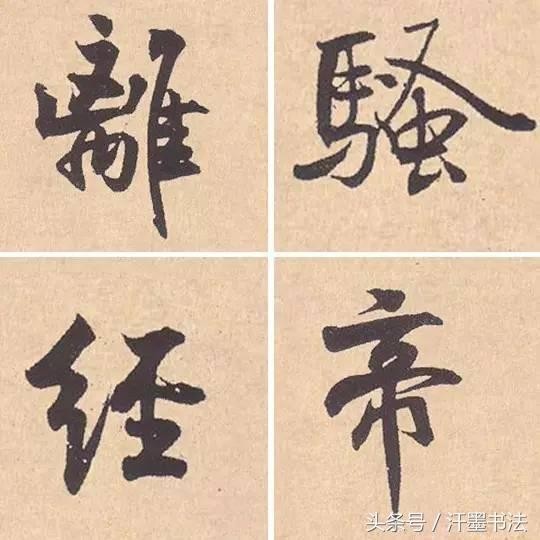 離騷
经帝
头条号／汗墨书法